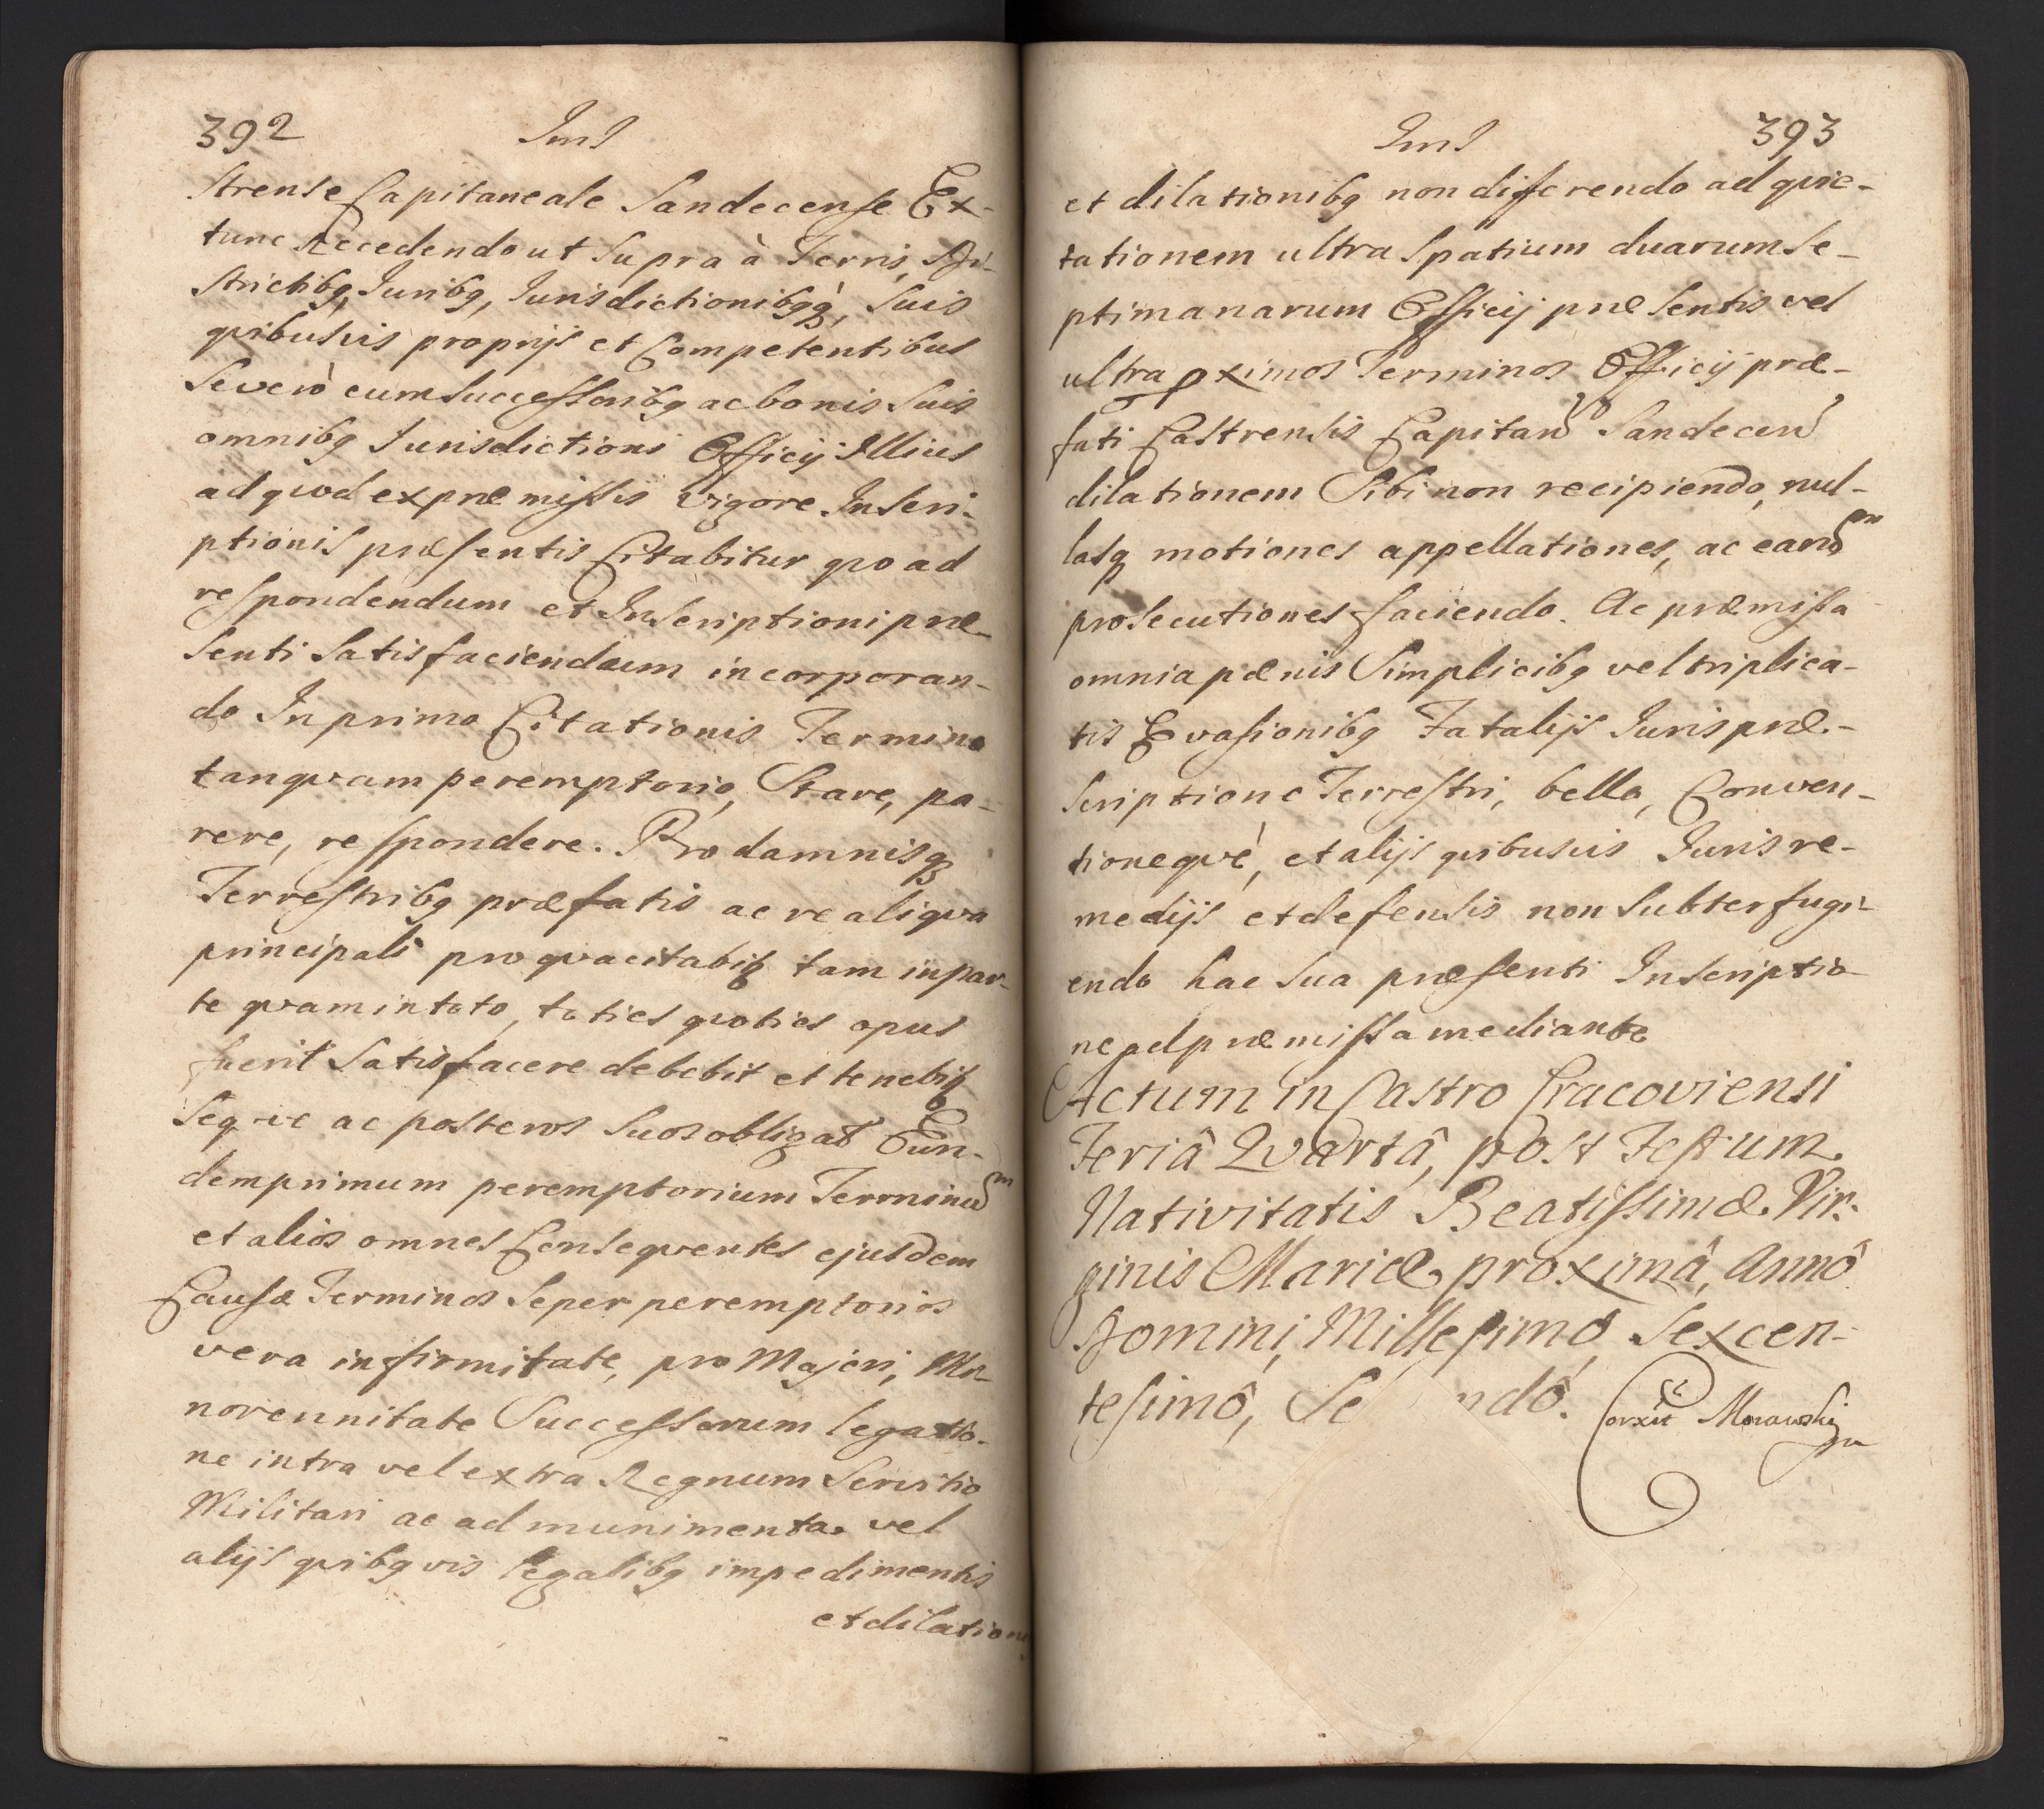 392 Jms
strense Capitaneale Sandecense Ex-
tunc recedendo ut supra à Terris, Di-
strictibq, Juribq, Jurisdictionibqq̀, suis
quibusvis proprijs et Competentibus
Severò cum Successoribq ac bonis suis
omnibq Jurisdictioni Officij Illius
ad qvod ex præmissis vigore Inscri-
ptionis præsentis Citabitur qvo ad
respondendum et Inscriptioni præ-
senti satisfaciendum incorporan-
do In primo Citationis Termino
tanqvam peremptorio, Stare, pa-
rere, respondere. Pro damnisq
Terrestribq præfatis ac re aliqva
principali pro qva citabitq tam in par-
te qvam in toto, toties qvoties opus
fuerit satisfacere debebit et tenebitq
seqve ac posteros suos obligat Eun-
dem primum peremptorium Terminum
et alios omnes Conseqventes ejusdem
Causæ Terminos seper peremptorios
vera infirmitate, pro Majori, Mi-
norennitate Successorum legatio-
ne intra vel extra Regnum Servitio
Militari ac ad munimenta vel
alijs qvibqvis legalibq impedimentis
et dilation
Jms 393
et dilationibq non differendo ad qvie-
tationem ultra spatium duarum Se-
ptimanarum Officij præsentis vel
ultra pximos Terminos Officij præ-
fati Castrensis Capitan Sandecen
dilationem Sibi non recipiendo, nul-
lasq motiones appellationes, ac earum
prosecutiones faciendo. Ac præmissa
omnia pænis Simplicibq vel triplica-
tis Evasionibq Fatalijs Juris præ-
scriptione Terrestri, bello, Conven-
tioneqvè, et alijs qvibusvis Juris re-
medijs et defensis non subterfugi-
endo hac sua præsenti Inscriptio-
ne ad præmissa mediante
Actum in Castro Cracoviensi
Feriâ Qvartâ, post Festum
Nativitatis Beatissimæ Vir-
ginis Mariæ proximâ, Annô
Domini, Millesimô Sexcen-
tesimô, Se ndô. Corxit Morawski